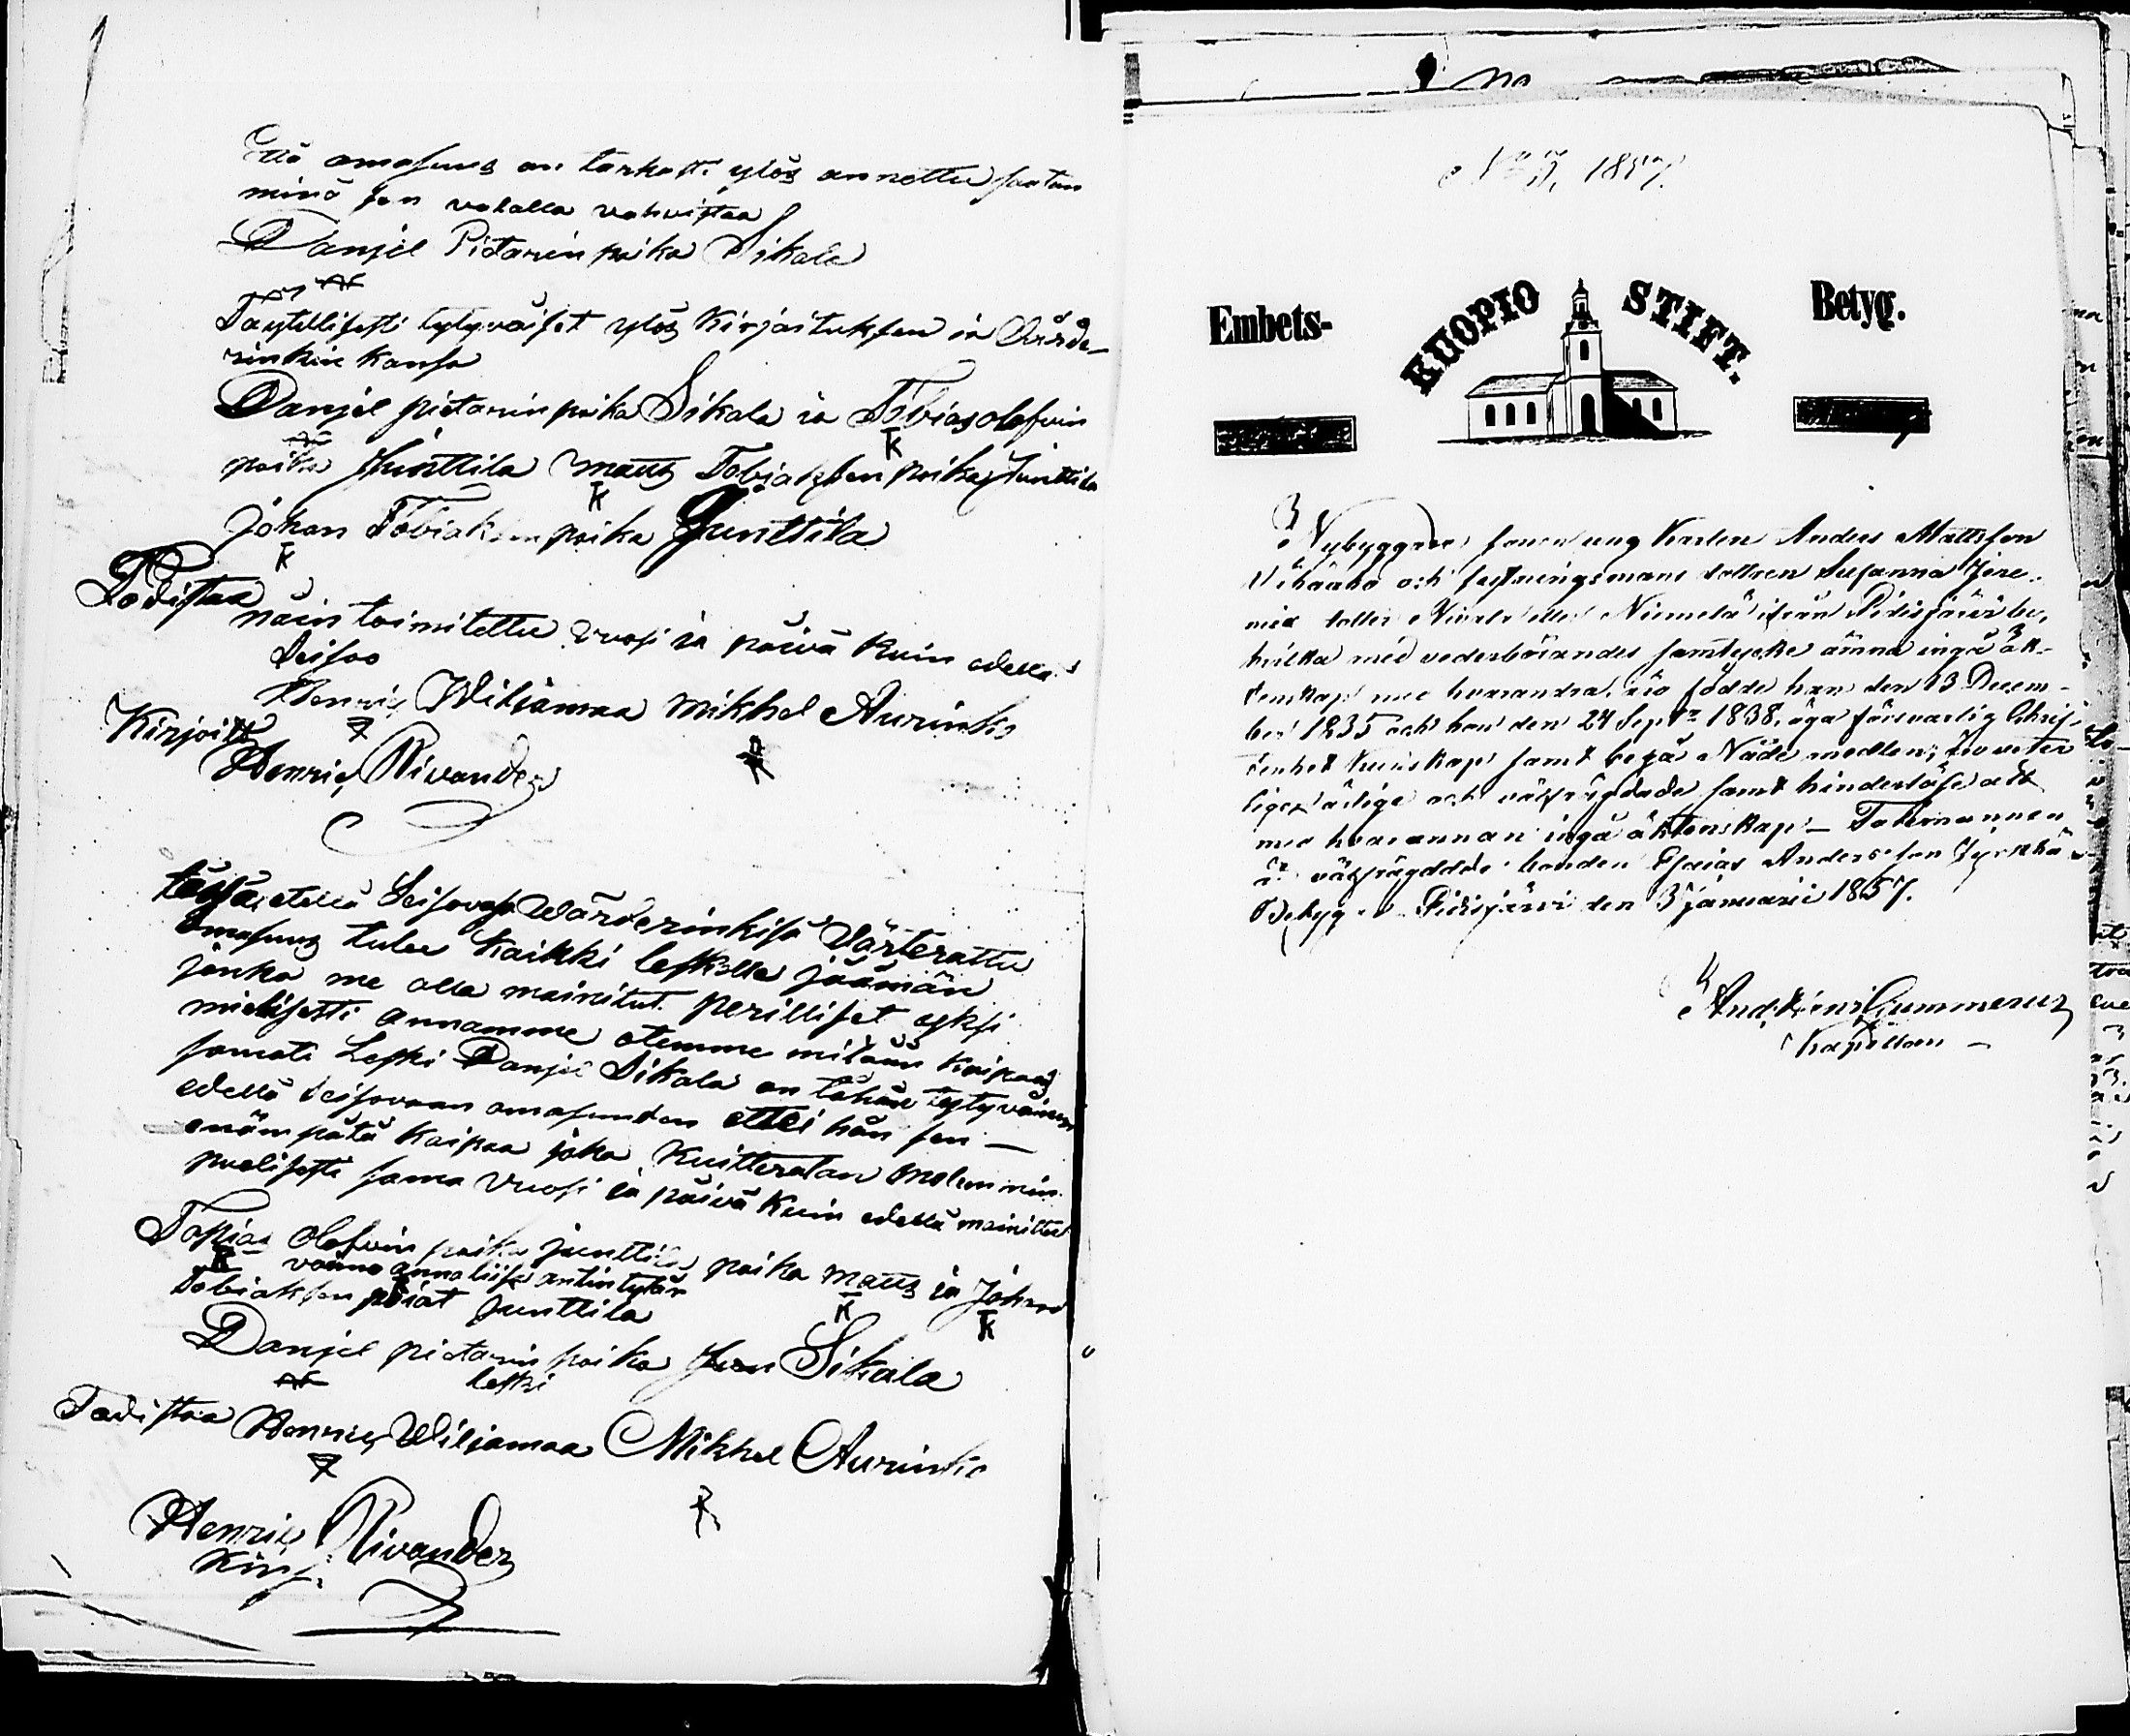 Että omasuus on tarkasti ylös annettu saatan
minä sen valalla vahvistaa
Danjel Pietarin poika Sikala
Täytellisesti tytyväiset ylös Kirjoituksen ia Värde-
rinkin kansa
Danjel pietarin poika Sikala ia Tobias olofvin
poika Junttila matts Tobiaksen poika Junttila
K
Johan Tobiaksen poika Junttila
K
K
Todistaa
näin toimitettu vuosi ia päivä kuin edellä
seisoo
Henric Wiliamaa Mikkel Aurinko
Kirjoitti
Henric Rivander
tässä edellä Seisovasa Wärderinkisä Värterattu
omasuus tulee kaikki leskelle jäämän
jonka me alla mainitut perilliset yksi
mielisesti annamme otemme mitään kaipaa
samati Leski Danjel Sikala on tähän tytyväinen
edellä seisovaan omasuuden ettei hän sen
enämpätä kaipaa joka Kuitteratan molemmin
puolisesti sama vuosi ia päivä kuin edellä mainittu
Topias Olofvin poika junttila poika matts ia Johan
K vaimo anna liisa antin tytär
Tobiaksen poiat Junttila
K
K
Danjel pietarin poika Sikala
leski
Todistaa Henric Wiliamaa Mikkel Aurinko
Henric Rivander
Kirj.
No 3, 1857.
Embets- KUOPIO STIFT. Betyg.
Nybyggare sonen ung Karlen Anders Mattsson
Vihaako och festningsmans dottren Susanna Jere-
mia dotter Nivala eller Niemelä ifrån Pidisjärvi by,
hvilka med vederbörandes samtycke ämna ingå äk-
tenskap med hvarandra, äro födde han den 13 Decem-
ber 1835 och hon den 24 Sept. 1838, äga försvarlig Chris-
tenhets kunskap samt begå Nådemedlen; äro veter
ligen ärlige och välfrägdade samt hinderslöse att
med hvarannan ingå äktenskap - Talemannen
är välfrägdade bonden Esaias Andersson
Betygar Pidisjärvi den 3 januarii 1857.
And. Gummerus
Kapellan